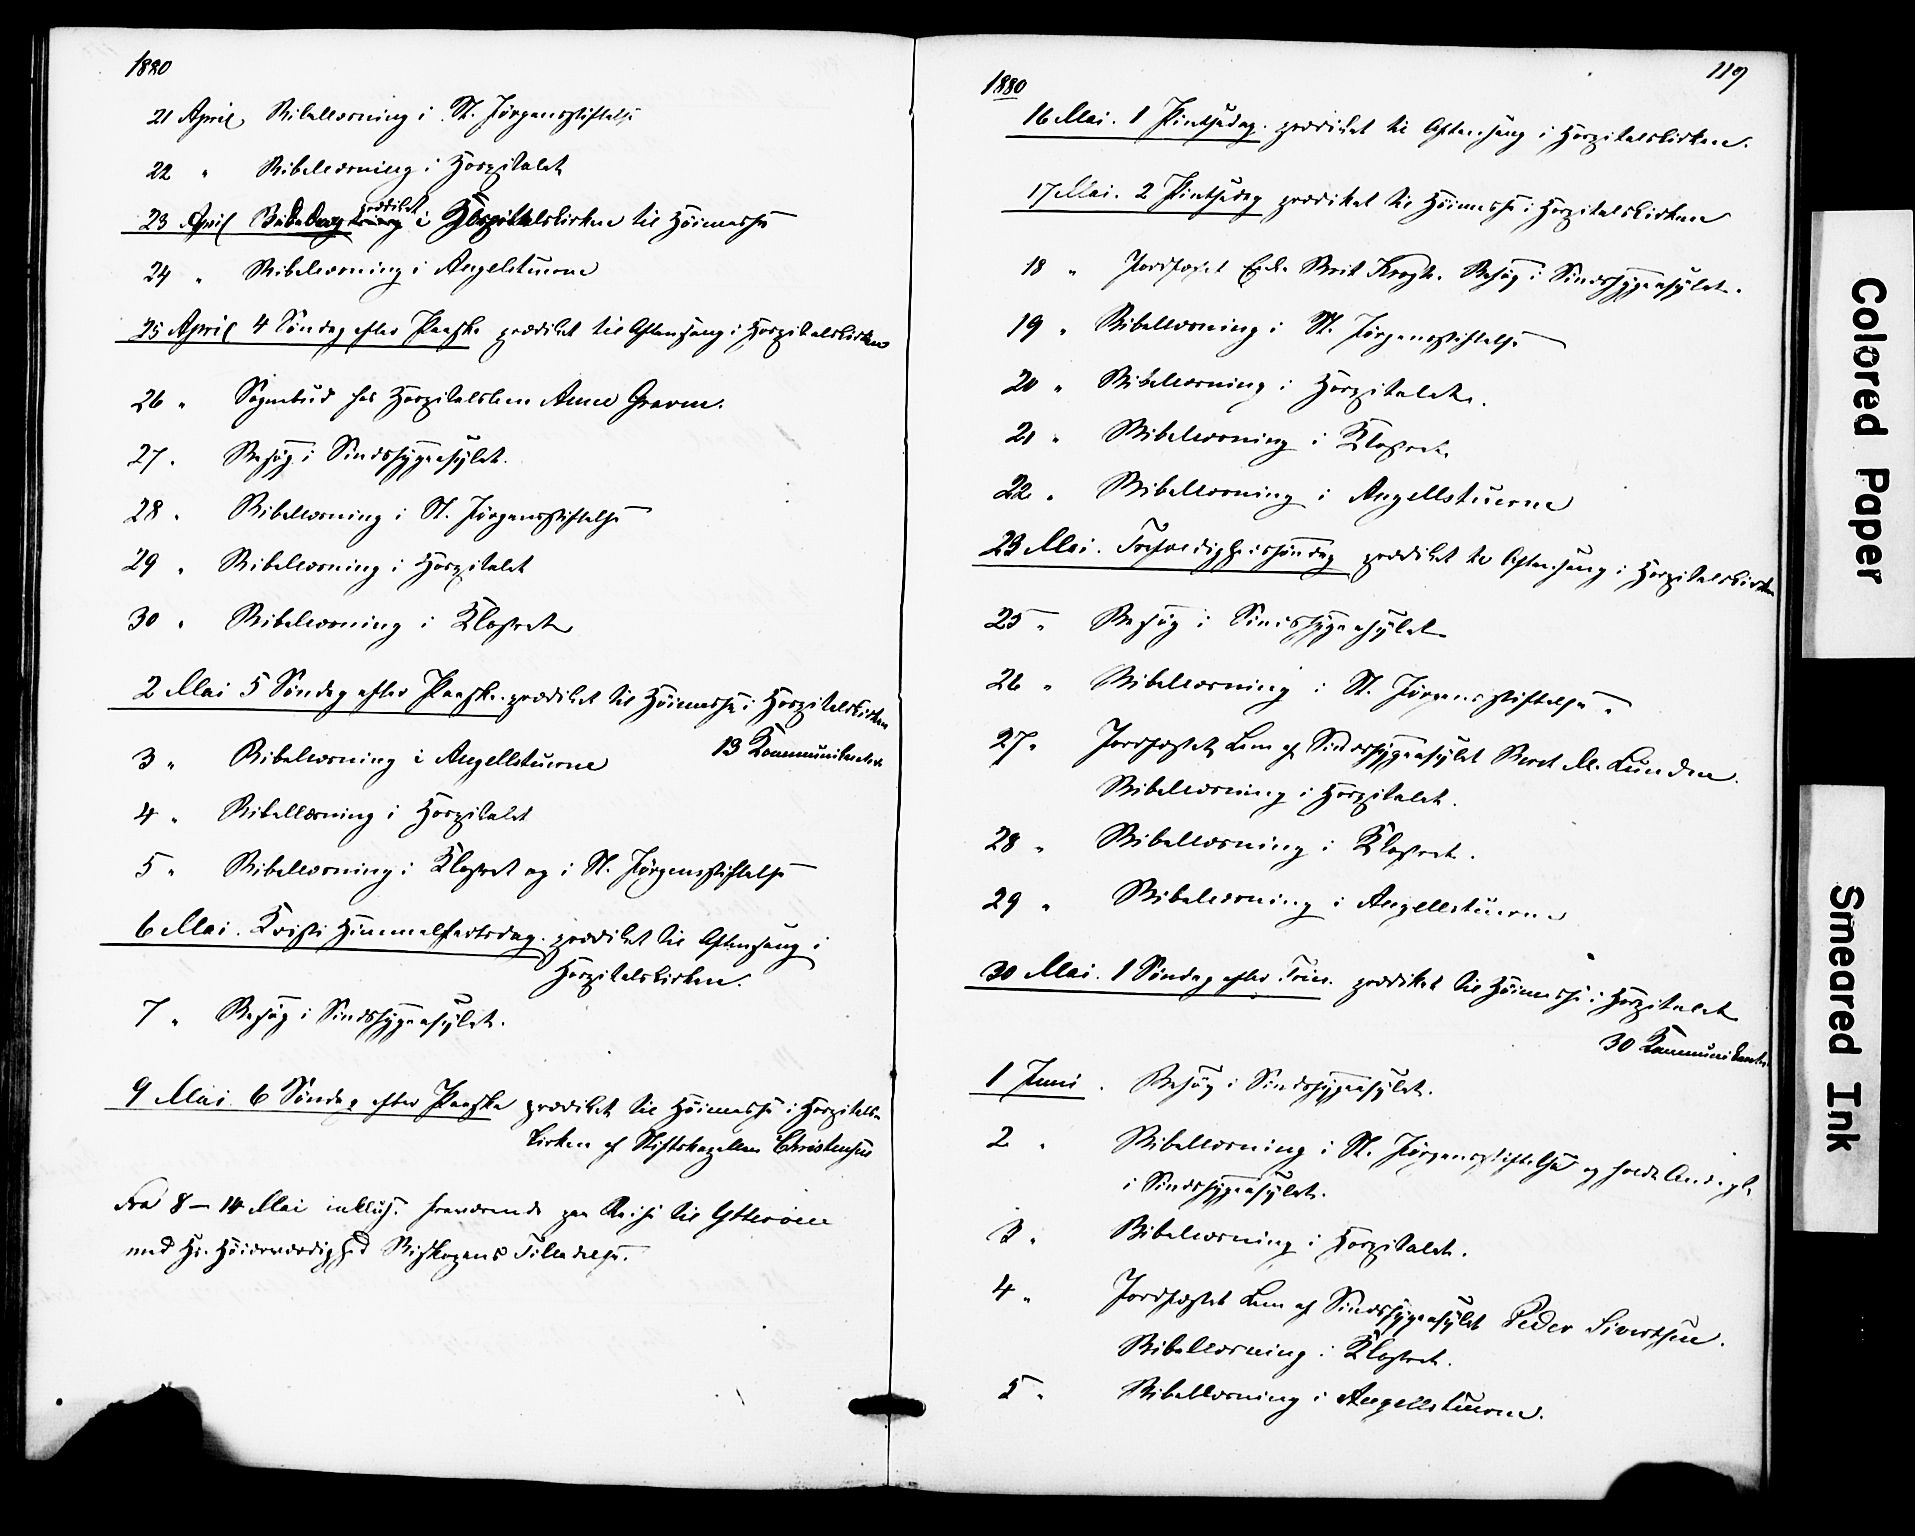 1880
21 April Bibellæsning i St. Jørgensstiftelse
22 " Bibellæsning i Hospitalet
23 April Bededag prædiket i Hospitalskirken til Høimesse
24 " Bibellæsning i Angellstuerne
25 April 4 Søndag efter Paaske prædiket til Aftensang i Hospitalskirken
26 " Sognebud hos Hospitalslem Anne Graven.
27 " Besøg i Sindssygeasylet.
28 " Bibellæsning i St. Jørgensstiftelse
29 " Bibellæsning i Hospitalet
30 " Bibellæsning i Klostret
2 Mai 5 Søndag efter Paaske. prædiket til Høimesse i Hospitalskirken
13 Kommunikanter
3 " Bibellæsning i Angellstuerne
4 " Bibellæsning i Hospitalet
5 " Bibellæsning i Klostret og i St. Jørgensstiftelse
6 Mai. Kristi Himmelfartsdag. prædiket til Aftensang i
Hospitalskirken.
7 " Besøg i Sindssygeasylet.
9 Mai 6 Søndag efter Paaske prædiket til Høimesse i Hospitals-
kirken af Stiftskapellan Christensen
Fra 8 – 14 Mai inklus. fraværende paa Reise til Ytterøen
med Hr. Høiærværdighed Biskopens Tilladelse.
1880
119
16 Mai. 1 Pintsedag. prædiket til Aftensang i Hospitalskirken.
17 Mai. 2 Pintsedag prædiket til Høimesse i Hospitalskirken
18 " Jordfæstet Enke Brit Krogh. Besøg i Sindssygeasylet.
19 " Bibellæsning i St. Jørgensstiftelse
20 " Bibellæsning i Hospitalet.
21 " Bibellæsning i Klostret.
22 " Bibellæsning i Angellstuerne
23 Mai. Trefoldighedssøndag prædiket til Aftensang i Hospitalskirken
25 " Besøg i Sindssygeasylet
26 " Bibellæsning i St. Jørgensstiftelse.
27 " Jordfæstet Lem af Sindssygeasylet Beret M. Lunden.
Bibellæsning i Hospitalet.
28 " Bibellæsning i Klostret.
29 " Bibellæsning i Angellstuerne
30 Mai. 1 Søndag efter Trin. prædiket til Høimesse i Hospitalet
30 Kommunikanter
1 Juni. Besøg i Sindssygeasylet.
2 " Bibellæsning i St. Jørgensstiftelse og holdt Andagt
i Sindssygeasylet.
3 " Bibellæsning i Hospitalet.
4 " Jordfæstet Lem af Sindssygeasylet Peder Sivertsen.
Bibellæsning i Klostret.
5 " Bibellæsning i Angellstuerne.
Colored Paper
Smeared Ink